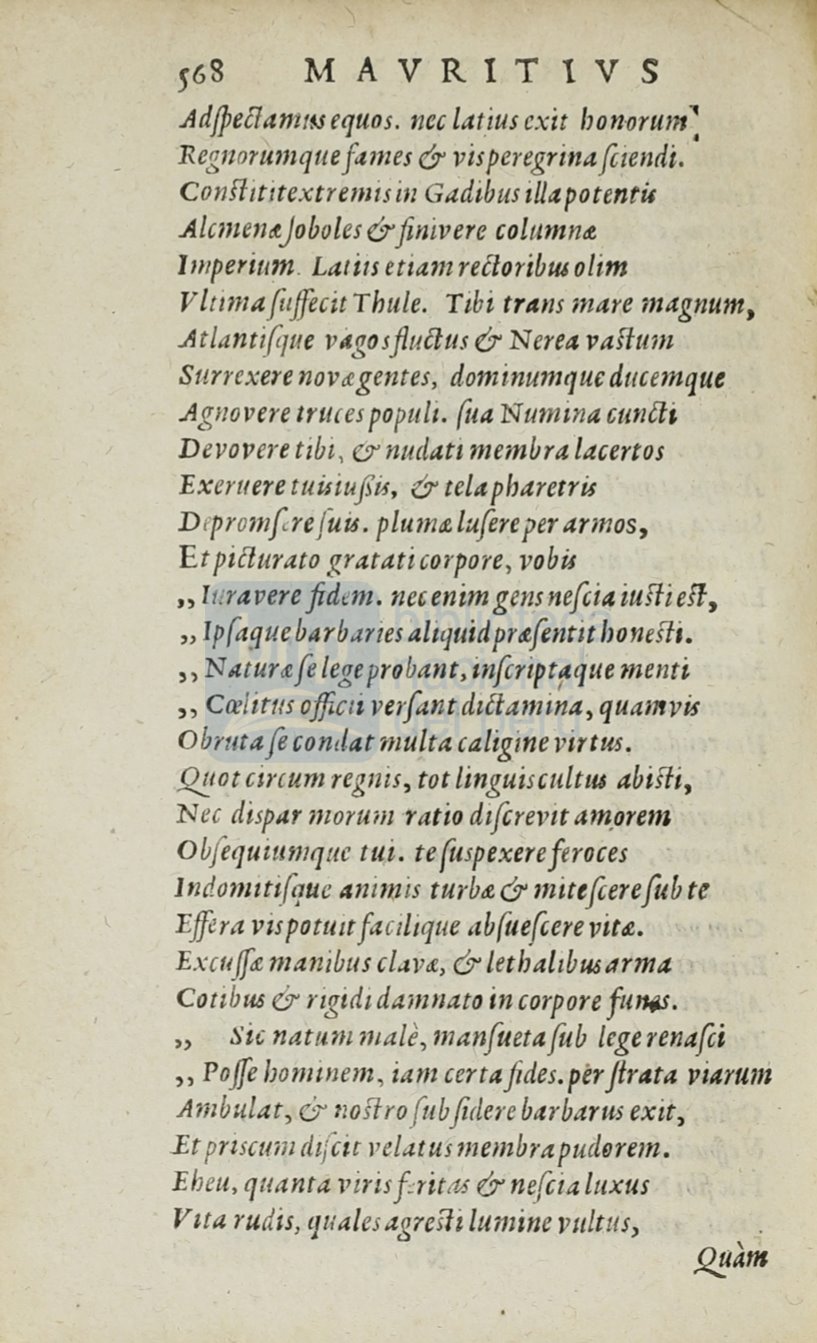 568 MAVRITIVS
Adſpectamus equos. nec latius exit honorum
Regnorumque fames & vis peregrina ſciendi.
Conſtitit extremis in Gadibus illa potentis
Alcmenæ ſoboles & finivere columnæ
Imperium. Latiis etiam rectoribus olim
Vltima ſuffecit Thule. Tibi trans mare magnum,
Atlantiſque vagos fluctus & Nerea vaſtum
Surrexere novæ gentes, dominumque ducemque
Agnovere truces populi. ſua Numina cuncti
Devovere tibi, & nudati membra lacertos
Exeruere tuis iuſſis, & tela pharetris
Depromſere ſuis. plumæ luſere per armos,
Et picturato gratati corpore, vobis
,, Iuravere fidem. nec enim gens neſcia iuſti eſt,
,, Ipſaque barbaries aliquid præſentit honeſti.
,, Naturæ ſe lege probant, inſcriptaque menti
,, Cœlitus officii verſant dictamina, quamvis
Obruta ſe condat multa caligine virtus.
Quot circum regnis, tot linguis cultus abiſti,
Nec dispar morum ratio diſcrevit amorem
Obſequiumque tui. te ſuspexere feroces
Indomitiſque animis turbæ & miteſcere ſub te
Effera vis potuit facilique abſueſcere vitæ.
Excuſſæ manibus clavæ, & lethalibus arma
Cotibus & rigidi damnato in corpore funes.
,, Sic natum malè, manſueta ſub lege renaſci
,, Poſſe hominem, iam certa fides. per ſtrata viarum
Ambulat, & noſtro ſub ſidere barbarus exit,
Et priscum diſcit velatus membra pudorem.
Eheu, quanta viris feritas & neſcia luxus
Vita rudis, quales agreſti lumine vultus,
Quàm